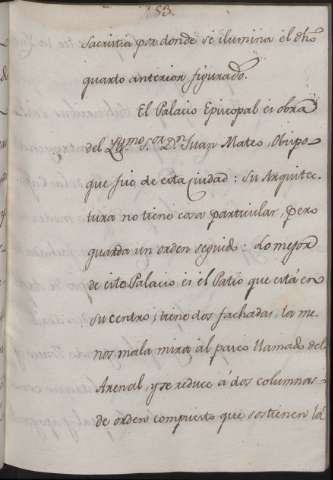 153.
Sacristia por donde se ilumina el dho
quarto anterior figurado.
El Palacio Episcopal es obra
del Yllmo. S.or D.n Juan Mateo, Obispo
que fue de esta Ciudad: su Arquitec-
tura no tiene cosa particular, pero
guarda un orden seguido: Lo mejor
de este Palacio es el Patio que está en
su centro; tiene dos fachadas, la me-
nos mala mira al paseo llamado del
Arenal, y se reduce á dos columnas
de orden compuesto que sostienen